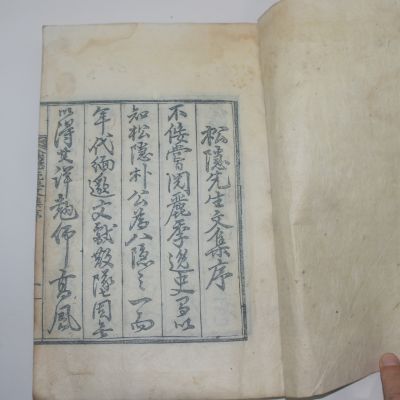 松隱先生文集序
不佞嘗閱麗季逸史
知松隱朴公為八隱之一而
年代緬邈文獻散墜固無
以得其詳 高風